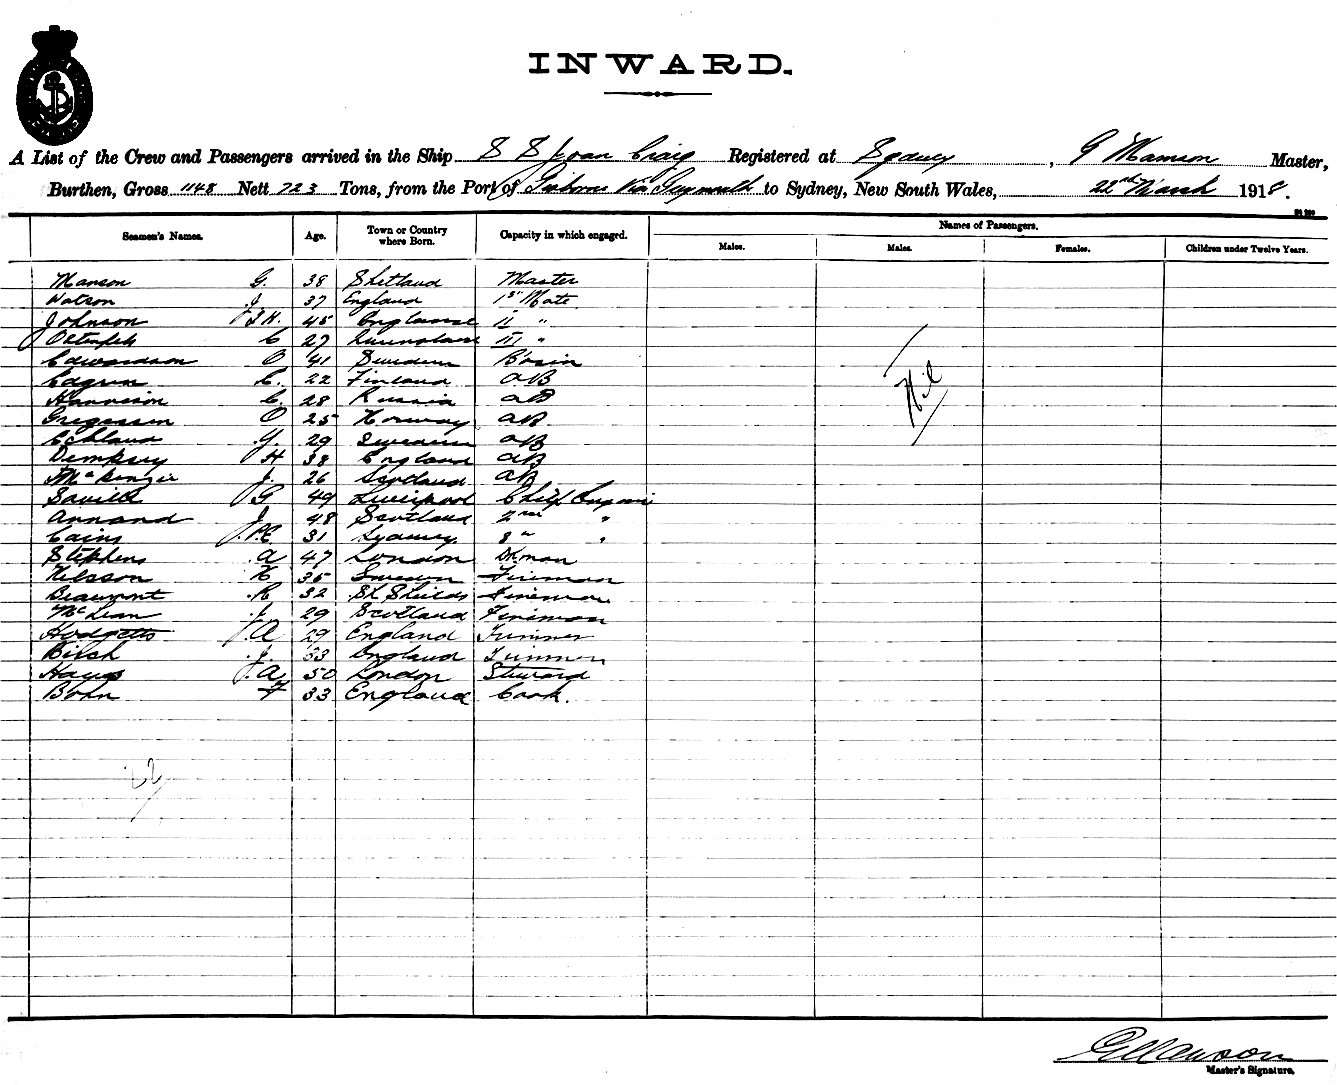 INWARD.
A List of the Crew and Passengers arrived in the Ship S S Joan Craig Registered at Sydney, G Manson Master,
Burthen, Gross 1148 Nett 723 Tons, from the Port of Gisborne Via to Sydney, New South Wales, 22nd March 1918.
Seamen's Names. Age. Town or Country where Born. Capacity in which engaged. Names of Passengers.
Males. Males. Females. Children under Twelve Years.
Manson G. 38 Shetland Master
Watson J. 37 England 1st Mate
Johnson J.H. 45 England II "
C 27 Queensland III "
Edwardson O 41 Sweden Bosin
22 Finland AB
Harrison C. 28 Russia AB
Gregersen O 25 Norway AB
Nil
Eckland G. 29 Sweden AB
Dempsey H 38 England AB
McKenzie J. 26 Scotland AB
Saville G 49 Liverpool Chief
Annand J 48 Scotland 2nd "
Cains J.P.C. 31 Sydney 3 "
Stephens A 47 London Dkman
Nilsson N 35 Sweden Fireman
Beaumont R 32 Sh Shields Fireman
McLean J. 29 Scotland Fireman
Hodgetts J.A 29 England Trimmer
Birch J. 33 England Trimmer
Hays J.A. 50 London Steward
Bohn F 33 England Cook.
22
G Manson
Master's Signature.